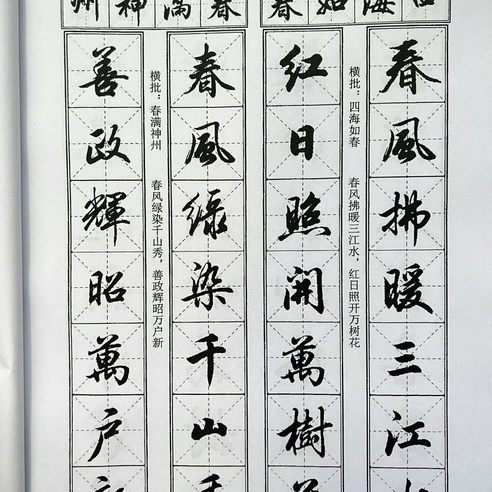 四海如春
春風拂暖三江水
横批：四海如春　春风拂暖三江水，红日照开万树花
红日照開萬樹花
春满神州
春風绿染千山秀
横批：春满神州　春风绿染千山秀，善政辉昭万户新
善政輝昭萬户新